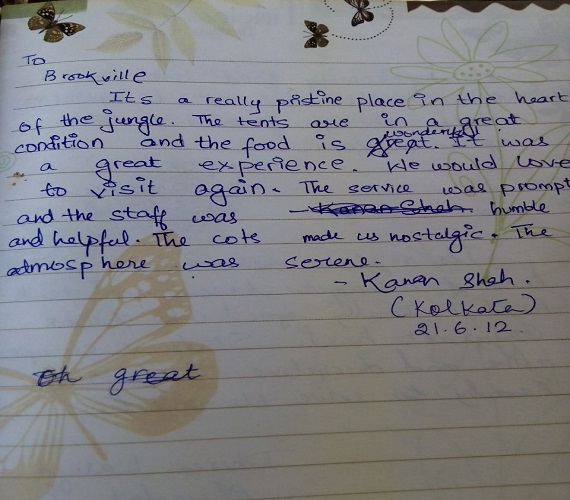 To
Brookville
Its a really pristine place in the heart
of the jungle. The tents are in a great
condition and the food is great. wonderful It was
a great experience. We would love
to visit again. The service was prompt
and the staff was - Kanan Shah humble
and helpful. The cots made us nostalgic. The
atmosphere was serene.
- Kanan Shah.
(Kolkata)
21.6.12.
Oh great